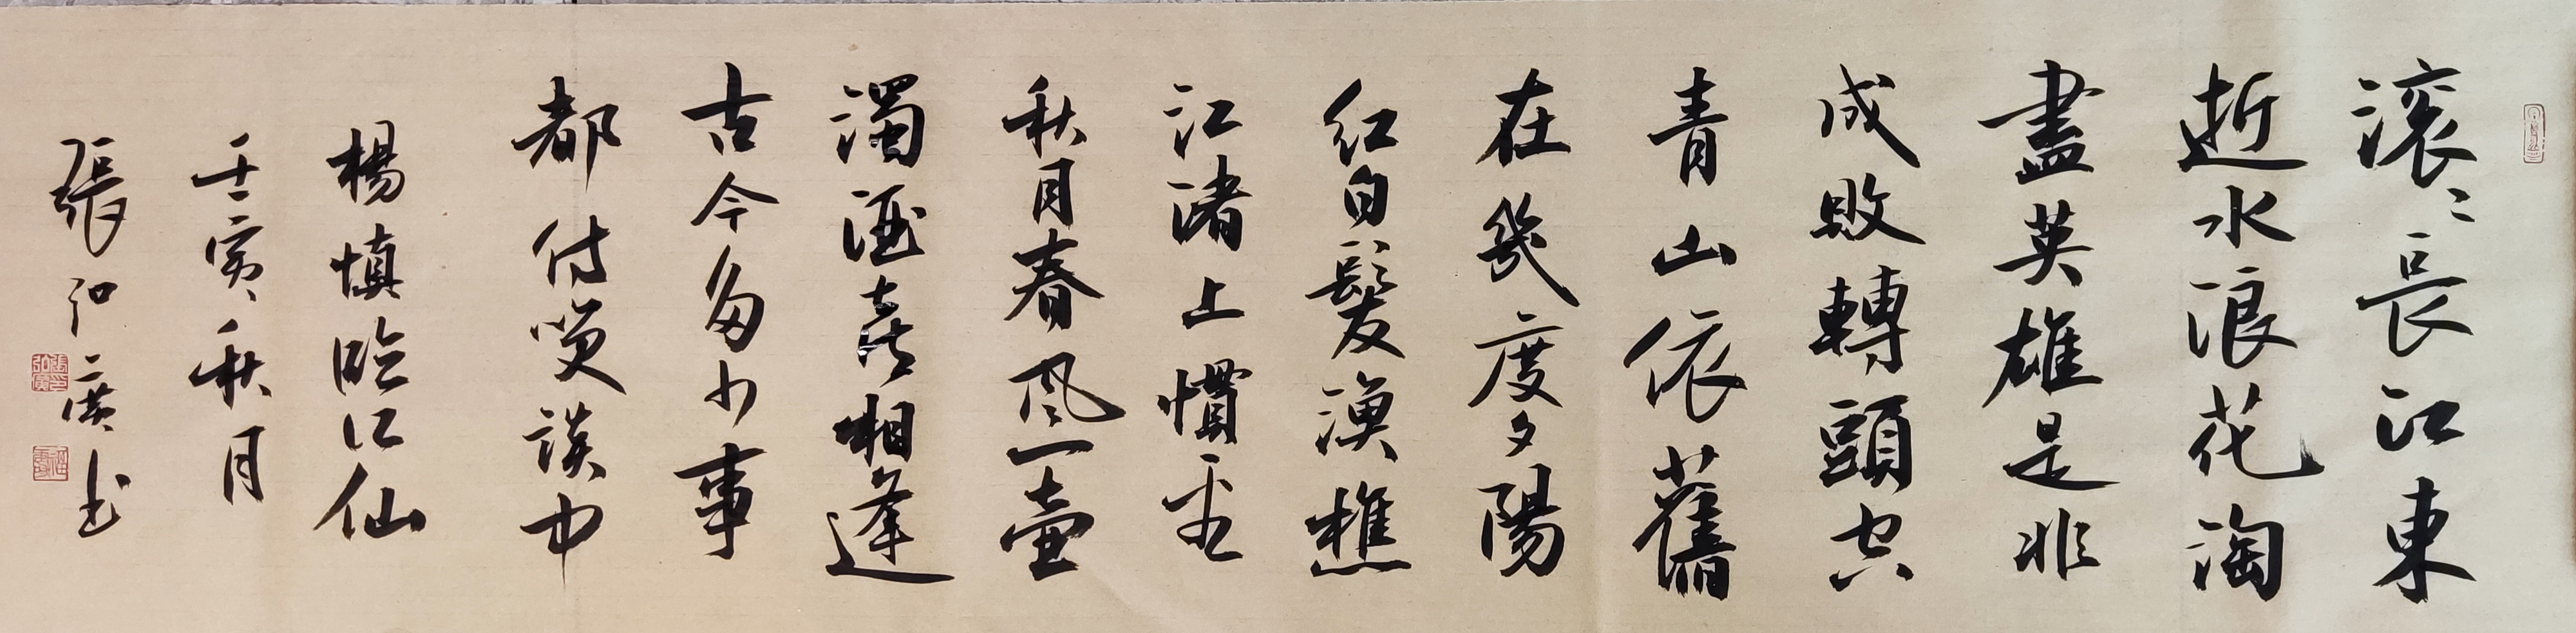 滚々長江東
逝水浪花淘
盡英雄是非
成敗轉頭空
青山依舊
在幾度夕陽
紅白髮漁樵
江渚上慣看
秋月春風一壺
濁酒喜相逢
古今多少事
都付笑談中
楊慎臨江仙
壬寅秋月
張弘廣书